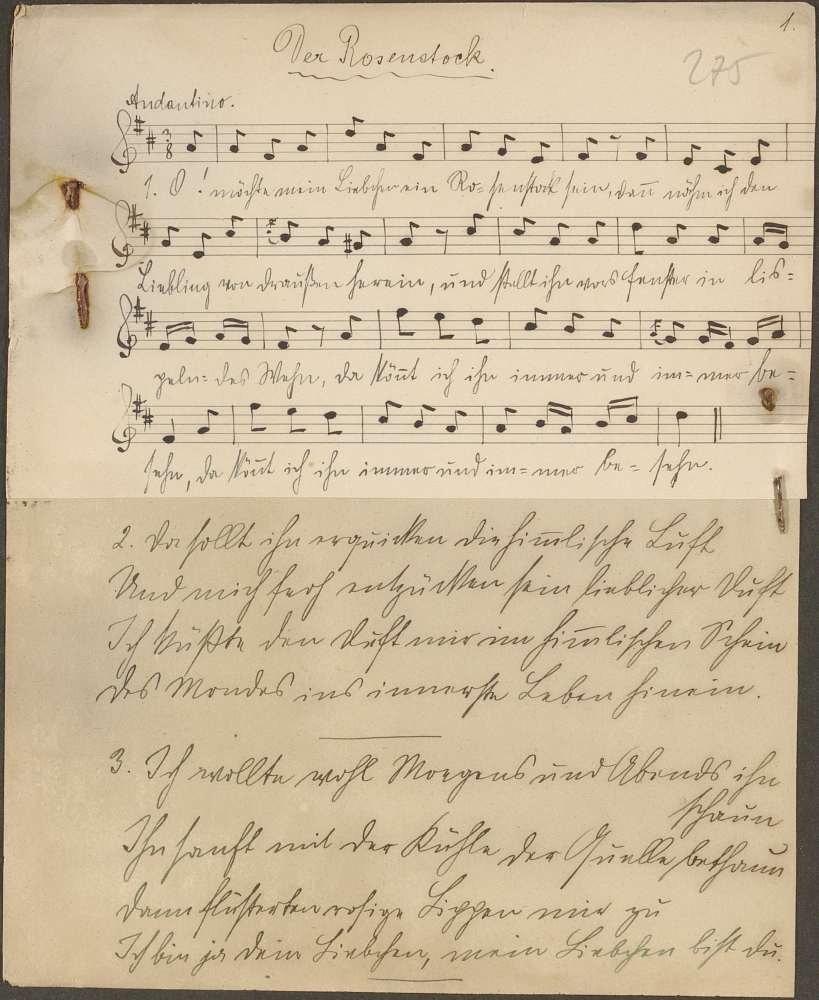 1.
Der Rosenstock.
275
Andantino.
3/8
1. O! möchte mein Liebchen ein Ro=senstock sein, dan̄ nähm ich den
Liebling von draußen herein, und stellt ihn vors Fenster in lis=
peln=des Wehn, da kön̄t ich ihn immer und im=mer be=
sehn, da kön̄t ich ihn immer und im=mer be=sehn.
2. Da sollt ihn erquicken die him̄lische Luft
Und mich flöh entzücken sein lieblicher Duft
Ich küßte den Duft mir im him̄lischen Schein
des Mondes ins innerste Leben hinein.
3. Ich wollte wohl Morgens und Abends ihn
schaun
Ihn sanft mit der Kühle der Quelle bethaun
Dann flüsterten rosige Lippen mir zu
Ich bin ja dein Liebchen, mein Liebchen bist du.